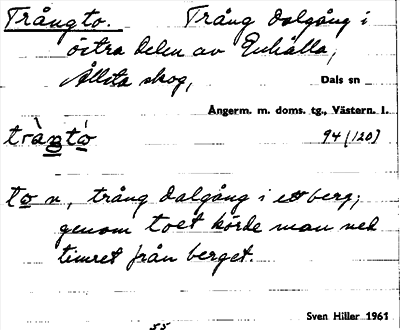 Trångto. Trång dalgång i
östra delen av Enhälla,
Ållsta skog, Dals sn
Ångerm. m. doms. tg., Västern. l.
tràŋtò 94 (120)
to n, trång dalgång i ett berg;
genom toet körde man ned
timret från berget.
Sven Hiller 1961
55